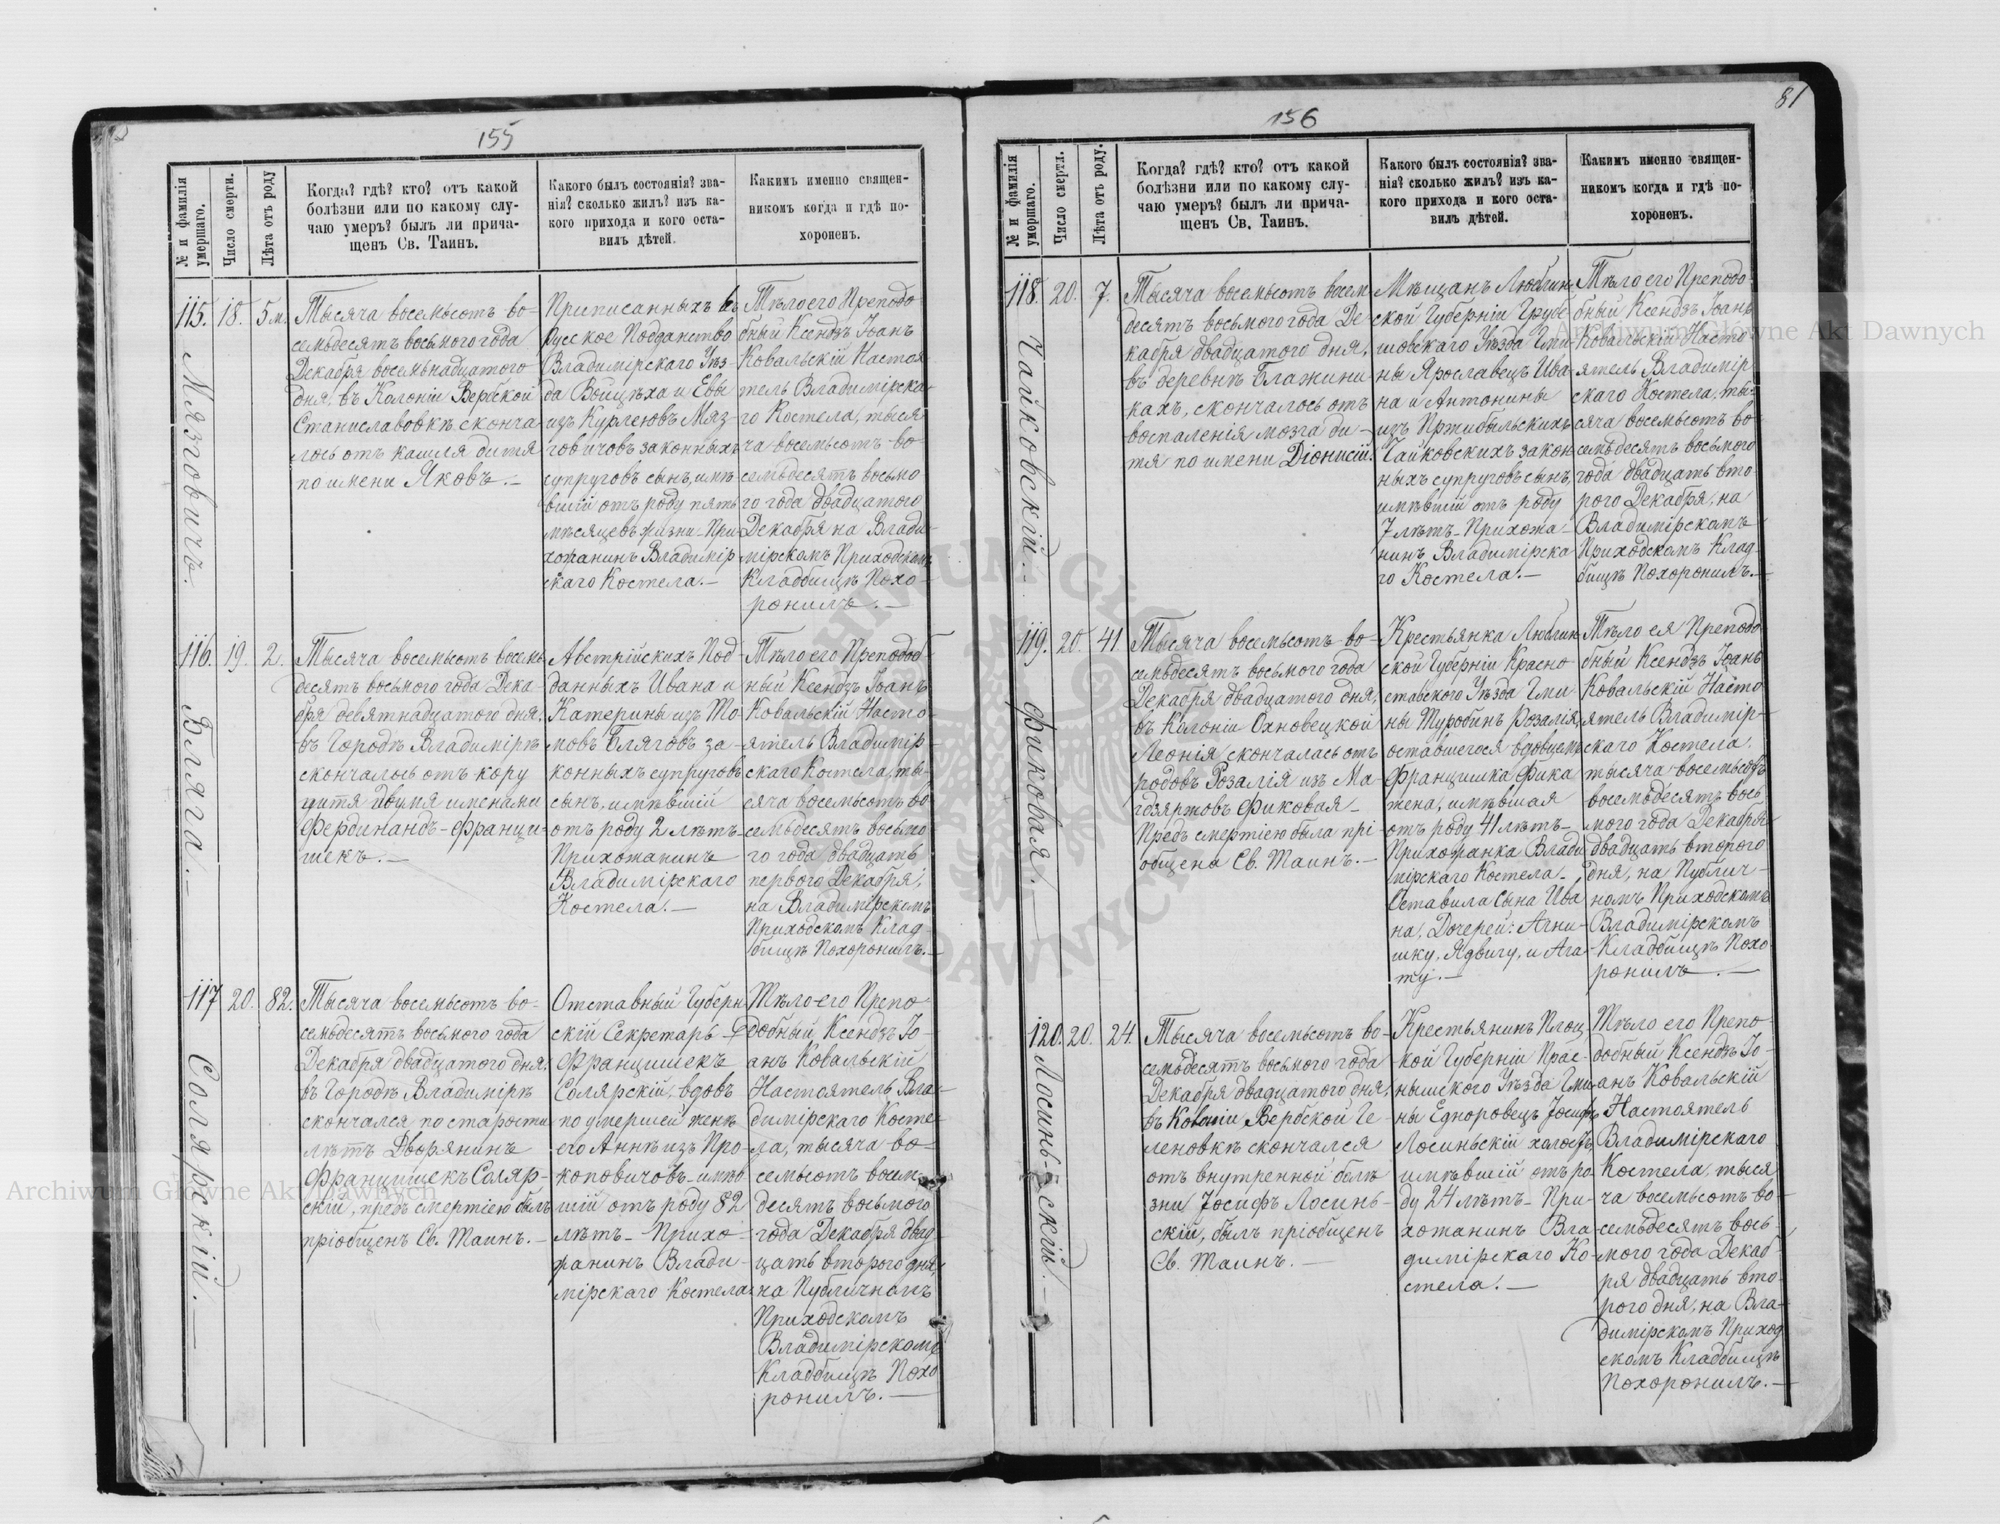 155
№ и фамилія умершаго.
Число смерти.
Лѣта отъ роду
Когда? гдѣ? кто? отъ какой
болѣзни или по какому слу-
чаю умеръ? былъ ли прича-
щенъ Св. Таинъ.
Какого былъ состоянія? зва-
нія? сколько жилъ? изъ ка-
кого прихода и кого оста-
вилъ дѣтей.
Какимъ именно священ-
никомъ когда и гдѣ по-
хороненъ.
115.
Мязговичъ.
18.
5 м.
Тысяча восемьсотъ во-
семьдесятъ восьмого года
Декабря восемьнадцатого
дня, въ Колоніи Вербской
Станиславовкѣ сконча
лось отъ кашля дитя
по имени Яковъ. —
Приписанныхъ въ
Русское Подданство
Владимірскаго Уѣз-
да Войцѣха и Евы
изъ Курлеювъ Мяз-
говичовъ законныхъ
супруговъ сынъ, имѣ
вшій отъ роду пять
мѣсяцевъ жизни - При
хожанинъ Владимір
скаго Костела. —
Тѣло его Преподо
бный Ксендзъ Іоанъ
Ковальскій Настоя
тель Владимірска-
го Костела, тыся
ча восемьсотъ во-
семьдесятъ восьмо
го года двадцатого
Декабря на Влади-
мірскомъ Приходскомъ
Кладбищѣ Похо-
ронилъ. —
116.
Бляга.
19.
2.
Тысяча восемьсотъ восемь
десятъ восьмого года Дека-
бря десятнадцатого дня,
въ Городѣ Владимірѣ
скончалось отъ кору
дитя двумя именами
Фердинандъ-Францы-
шекъ. —
Австрійскихъ Под
данныхъ Ивана и
Катерины изъ То
мовъ Блягов за-
конныхъ супруговъ
сынъ, имѣвшій
отъ роду 2 лѣтъ-
Прихожанинъ
Владимірскаго
Костела. —
Тѣло его Преподоб
ный Ксендзъ Іоанъ
Ковальскій Насто-
ятель Владимір-
скаго Костела, ты-
сяча восемьсотъ во-
семьдесятъ восьмо
го года двадцать
первого Декабря,
на Владимірскомъ
Приходскомъ Клад-
бищѣ Похоронилъ. —
117
Солярскій. —
20.
82.
Тысяча восемьсотъ во-
семьдесятъ восьмого года
Декабря двадцатого дня,
въ Городѣ Владимірѣ
скончался по старости
лѣтъ Дворянинъ
Францишекъ Соляр-
скій, предъ смертіею былъ
пріобщенъ Св. Таинъ. —
Отставный Губерн
скій Секретарь-
Францишекъ
Солярскій, вдовъ
по умершей женѣ
его Аннѣ изъ Про-
коповичовъ- имѣв
шій отъ роду 82
лѣтъ- Прихо-
жанинъ Влади-
мірскаго Костела.
Тѣло его Препо-
добный Ксендзъ Іо-
анъ Ковальскій
Настоятель Вла-
димірскаго Косте-
ла, тысяча во-
семьсотъ восемь
десятъ восьмого
года Декабря двад-
цать второго дня,
на Публичномъ
Приходскомъ
Владимірскомъ
Кладбищѣ Похо
ронилъ. —
81
156
№ и фамилія умершаго.
Число смерти.
Лѣта отъ роду.
Когда? гдѣ? кто? отъ какой
болѣзни или по какому слу-
чаю умеръ? былъ ли прича-
щенъ Св. Таинъ.
Какого былъ состоянія? зва-
нія? сколько жилъ? изъ ка-
кого прихода и кого оста-
вилъ дѣтей.
Какимъ именно священ-
никомъ когда и гдѣ по-
хороненъ.
118.
Чайковскій.
20.
7.
Тысяча восемьсотъ восем
десятъ восьмого года Де-
кабря двадцатого дня,
въ деревнѣ Блажини-
кахъ, скончалось отъ
воспаленія мозга ди-
тя по имени Діонисій.
Мѣщанъ Люблин
ской Губерніи Грубе
шовскаго Уѣзда Гми-
ны Ярославецъ Ива
на и Антонины
изъ Пржибыльскихъ
Чайковскихъ закон
ныхъ супруговъ сынъ,
имѣвшій отъ роду
7 лѣтъ- Прихожа-
нинъ Владимірска
го Костела. —
Тѣло его Преподо
бный Ксендзъ Іоанъ
Ковальскій Насто-
ятель Владимір
скаго Костела, ты-
сяча восемьсотъ во
семьдесятъ восьмого
года двадцать вто-
рого Декабря, на
Владимірскомъ
Приходскомъ Клад-
бищѣ Похоронилъ. —
119.
Фиковая. —
20.
41
Тысяча восемьсотъ во-
семьдесятъ восьмого года
Декабря двадцатого дня,
въ Колоніи Охновецкой
Леонія, скончалась отъ
родовъ Розалія изъ Ма
гдзяржовъ Фиковая -
Предъ смертіею была прі
общена Св. Таинъ. —
Крестьянка Люблин
ской Губерніи Красно
ставского Уѣзда Гми
ны Туробинъ Розалія,
оставшегося вдовцемъ
Францишка Фика
жена, имѣвшая
отъ роду 41 лѣтъ-
Прихожанка Влади
мірскаго Костела.
Оставила Сына Ива
на, Дочерей: Агни-
шку, Ядвигу, и Ага-
ту. —
Тѣло ея Преподо
бный Ксендзъ Іоанъ
Ковальскій Насто
ятель Владимір-
скаго Костела,
тысяча восемьсотъ
восемьдесятъ вось
мого года Декабря
двадцать второго
дня, на Публич-
номъ Приходскомъ
Владимірскомъ
Кладбищѣ Похо
ронилъ. —
120.
Лосинь-скій. —
20.
24.
Тысяча восемьсотъ во-
семьдесятъ восьмого года
Декабря двадцатого дня,
въ Колоніи Вербской Ге-
леновкѣ скончался
отъ внутренной болѣ
зни Іосифъ Лосинь-
скій, былъ пріобщенъ
Св. Таинъ. —
Крестьянинъ Плоц-
кой Губерніи Прас-
нышского Уѣзда Гми
ны Еднорожецъ Іосифъ
Лосиньскій холостъ,
имѣвшій отъ ро-
ду 24 лѣтъ- При-
хожанинъ Вла-
димірскаго Ко-
стела. —
Тѣло его Препо-
добный Ксендзъ Іо-
анъ Ковальскій
Настоятель
Владимірскаго
Костела, тыся
ча восемьсотъ во-
семьдесятъ вось-
мого года Декаб-
ря двадцать вто-
рого дня, на Вла-
димірскомъ Приход
скомъ Кладбищѣ
Похоронилъ. —
Archiwum Główne Akt Dawnych
Archiwum Główne Akt Dawnych